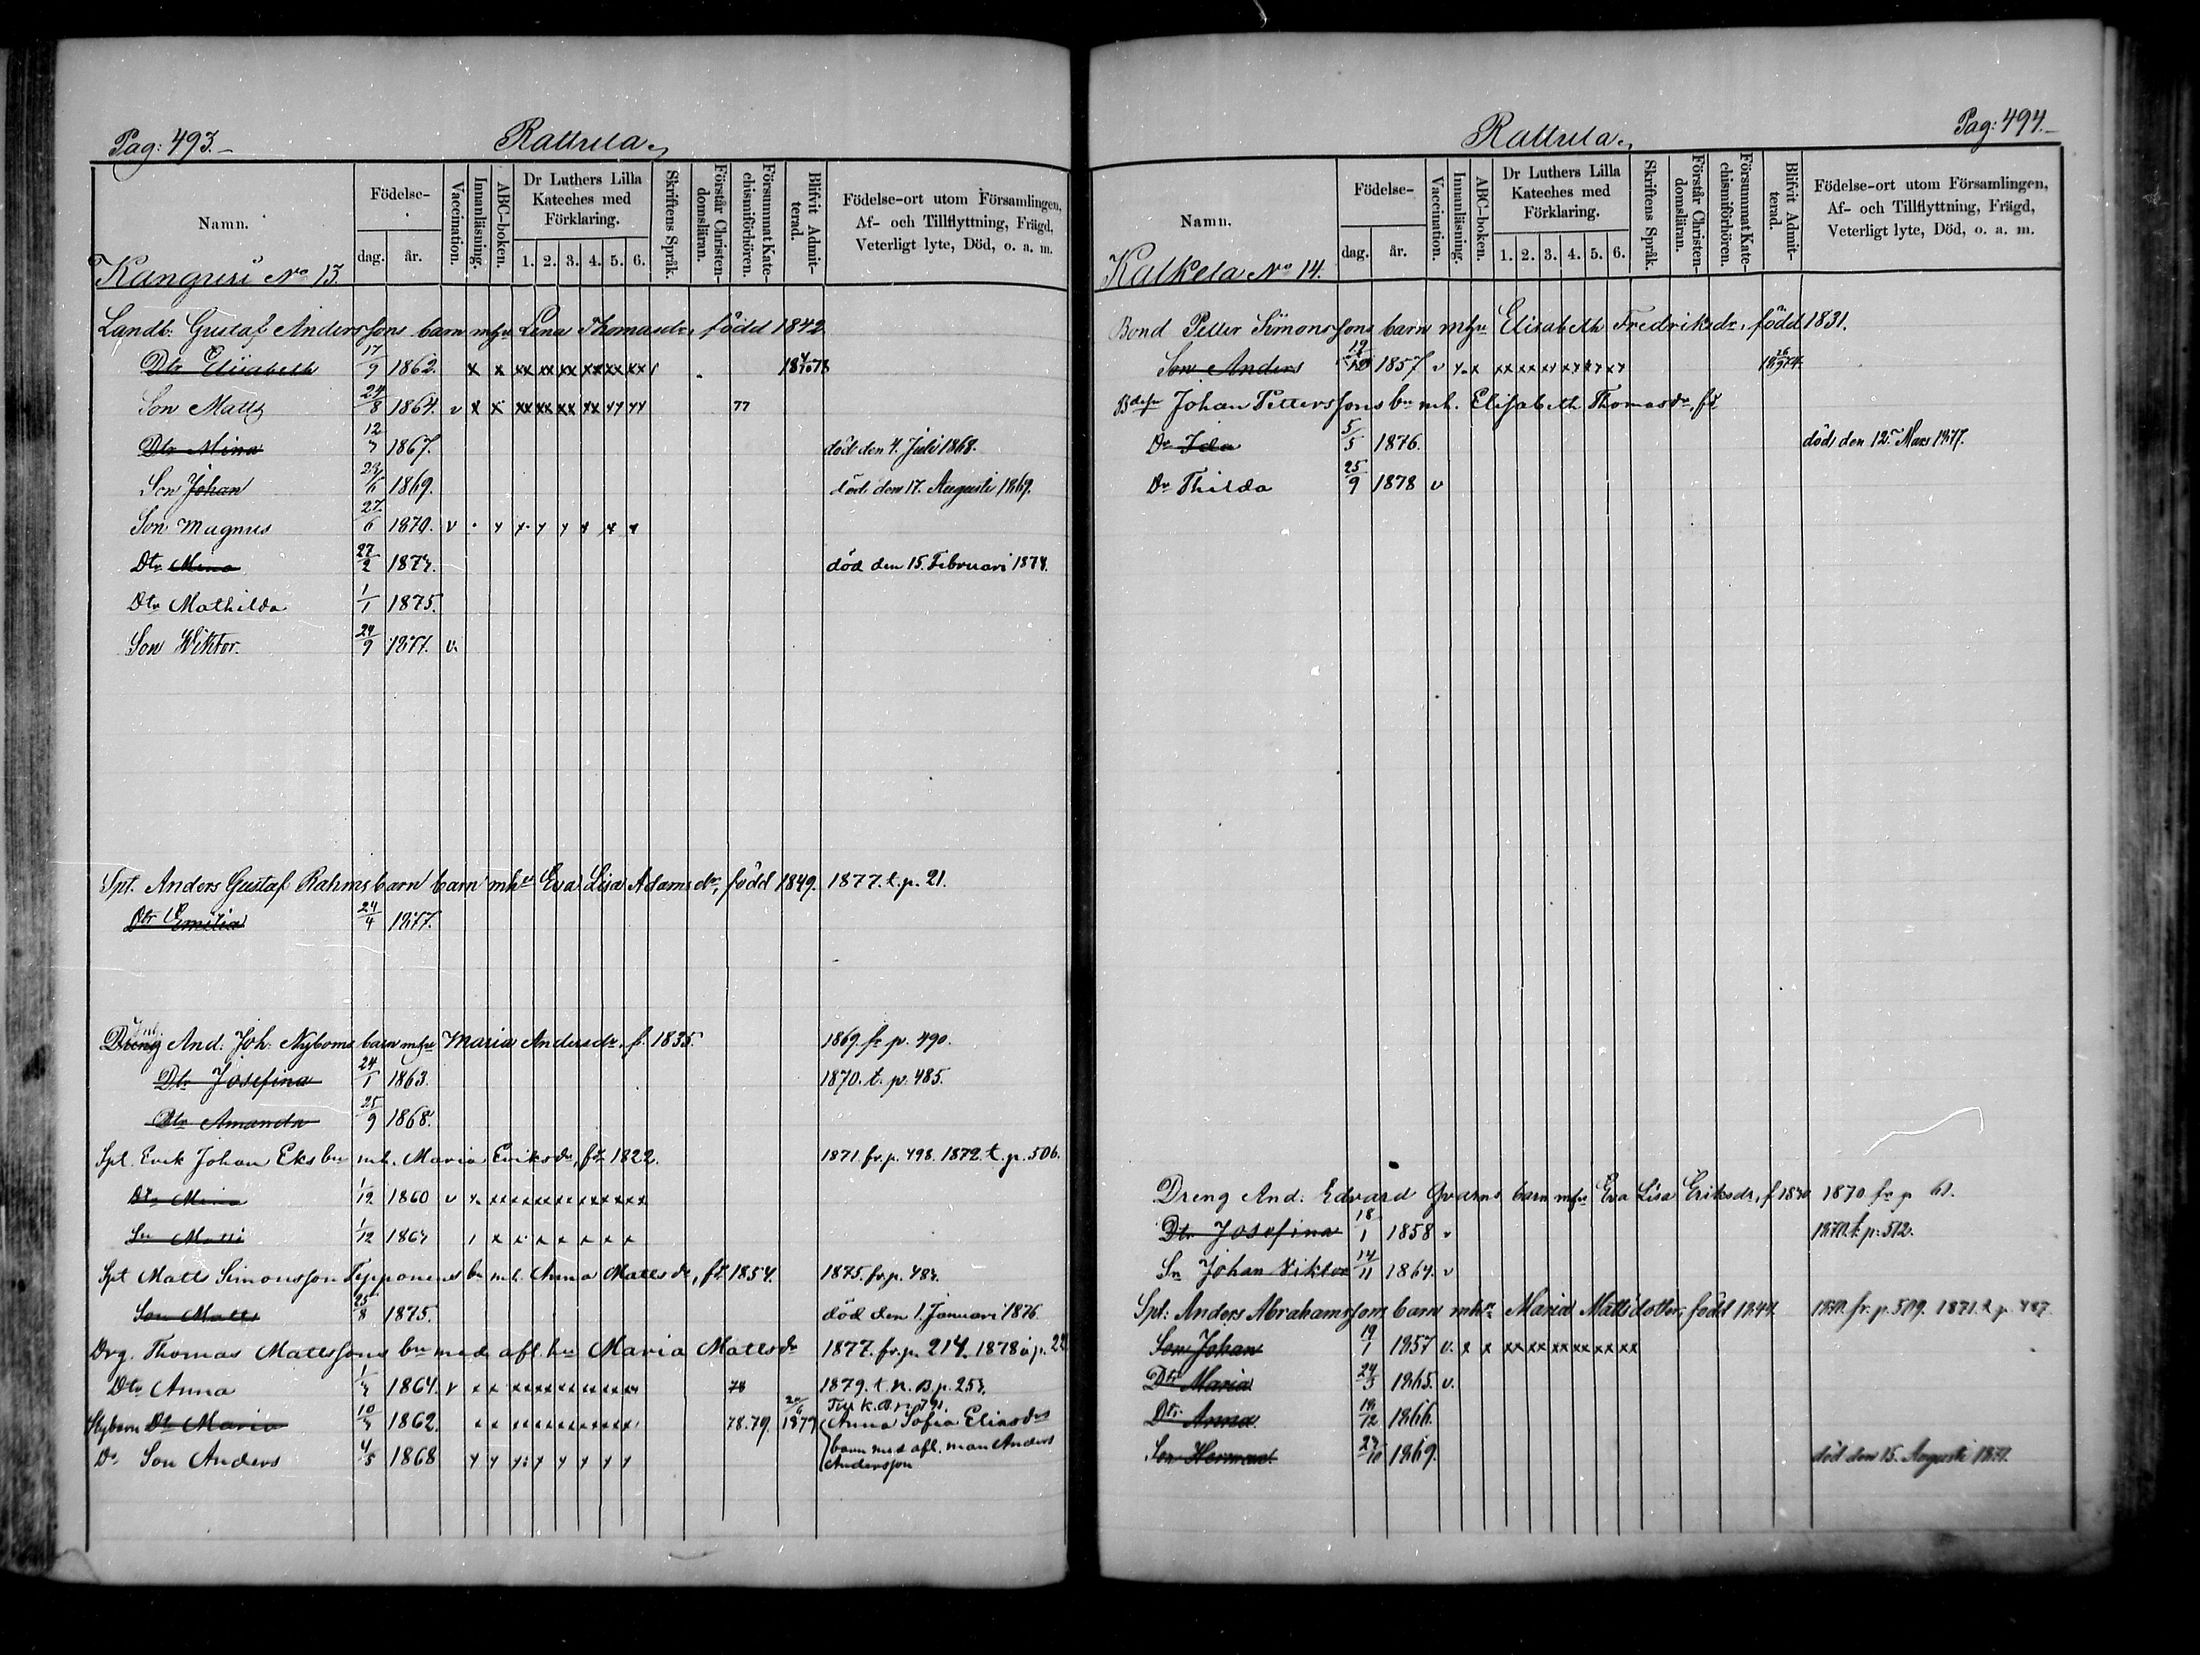 Pag: 493.
Rattula
Namn.
Födelse-
dag.
år.
Vaccination.
Innanläsning.
ABC-boken.
Dr Luthers Lilla Kateches med Förklaring.
1. 2. 3. 4. 5. 6.
Skriftens Språk.
Förstår Christen-domsläran.
Försummat Kate-chismiförhören.
Blifvit Admit-terad.
Födelse-ort utom Församlingen, Af- och Tillflyttning, Frägd, Veterligt lyte, Död, o. a. m.
Kanguri No 13.
Landb. Gustaf Anderssons barn m. hu Lena Thomasdr, född 1842
Dtr Elisabeth 17/9 1862. x x xx xx xx xx xx xx 18 4/10 78
Son Matts 24/8 1864. v x x xx xx xx xx xx xx 77
Dtr Mina 12/7 1867. död den 4. Juli 1868.
Son Johan 23/6 1869. död den 17. Augusti 1869.
Son Magnus 27/6 1870. v . x x x x x x x
Dtr Mina 27/2 1873. död den 15. Februari 1874.
Dtr Mathilda 1/1 1875.
Son Wiktor. 24/9 1877. v.
Spt. Anders Gustaf Rahms barn barn mhu Eva Lisa Adamsdr, född 1849. 1877. t. p. 21.
Dtr Emilia 24/4 1877.
Dreng And. Joh. Nyboms barn mhu Maria Andersdr. f. 1835. 1869. fr p. 490.
Dtr Josefina 24/1 1863. 1870. t. p. 485.
Dtr Amanda 25/9 1868.
Spt. Erik Johan Eks bn mh. Maria Eriksdr, fd 1822. 1871. fr. p. 498. 1872. t. p. 506.
Dtr Mina 1/12 1860 v x xx xx xx xx xx xx xx
Sn Matti 1/12 1863 x x x x x x x
Spt Matts Simonsson Tepponens bn mh. Anna Mattsdr, fd 1854. 1875. fr. p. 483.
Son Matts 25/8 1875. död den 1. Januari 1876.
Drg. Thomas Mattssons bn med afl. hu Maria Mattsdr 1877. fr. p. 214. 1878 i p. 22
Dtr Anna 1/3 1864. v x x xx xx xx xx xx xx 78 1879. t. N. B. p. 253.
Styfbarn Dtr Maria 10/3 1862. x x xx xx xx xx xx xx 78.79. 20/6 1879
Anna Sofia Eliasdrs
barn med afl. man Anders
Andersson
Do Son Anders 4/5 1868 x x x x x x x x
Pag: 494.
Rattula
Namn.
Födelse-
dag.
år.
Vaccination.
Innanläsning.
ABC-boken.
Dr Luthers Lilla Kateches med Förklaring.
1. 2. 3. 4. 5. 6.
Skriftens Språk.
Förstår Christen-domsläran.
Försummat Kate-chismiförhören.
Blifvit Admit-terad.
Födelse-ort utom Församlingen, Af- och Tillflyttning, Frägd, Veterligt lyte, Död, o. a. m.
Kalkela No 14.
Bond Petter Simonssons barn mhu Elisabeth Fredriksdr, född 1831.
Son Anders 1857 v x x xx xx xx xx xx xx 18 26/9 74.
Johan Petterssons bn mh. Elisabeth Thomasdr, fd
Dr Ida 5/5 1876. död den 12. Mars 1877.
Dr Thilda 25/9 1878 v
Dreng And. Edvard Qvarns barn mhu Eva Lisa Eriksdr, f. 1830 1870 fr p 61.
Dtr Josefina 18/1 1858 v 1870. t. p. 512.
Sn Johan Viktor 14/11 1864. v
Spt: Anders Abrahamssons barn mhu Maria Mattsdotter, född 1844. 1870. fr. p. 509. 1871. t. p. 487.
Son Johan 19/1 1857 v. x x xx xx xx xx xx xx
Dtr Maria 24/3 1865. v.
Dtr Anna 19/12 1866.
Son Herman 23/10 1869. död den 15. Augusti 1871.